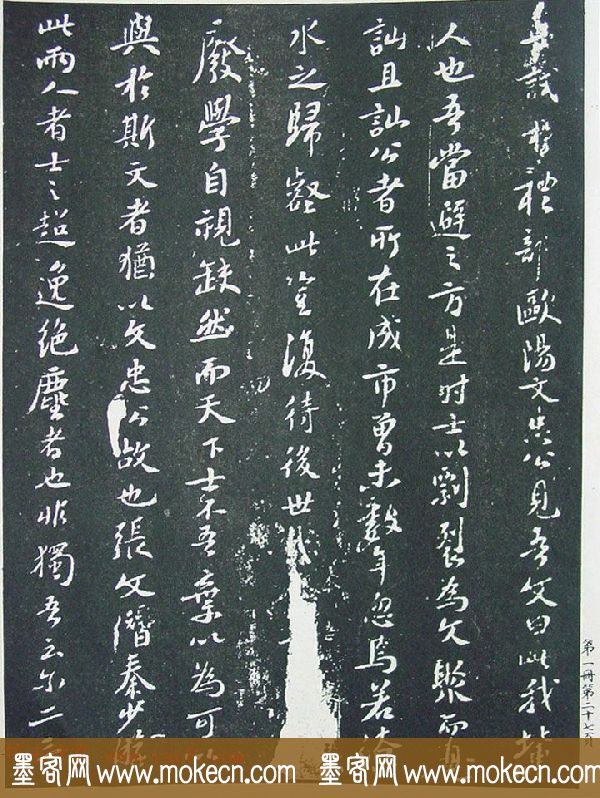 試於禮部歐陽文忠公見吾文曰此我輩
人也吾當避之方是时士以剽裂為文聚而見
訕且訕公者所在成市曾未數年忽焉若潦
水之歸壑此豈復待後世哉
廢學自視缺然而天下士不吾棄以為可以
與於斯文者猶以文忠公故也張文潛秦少游
此兩人者士之超逸絕塵者也非獨吾云尔二三
第一冊第二十七頁
墨客网 www.mokecn.com 墨客网 www.mokecn.com